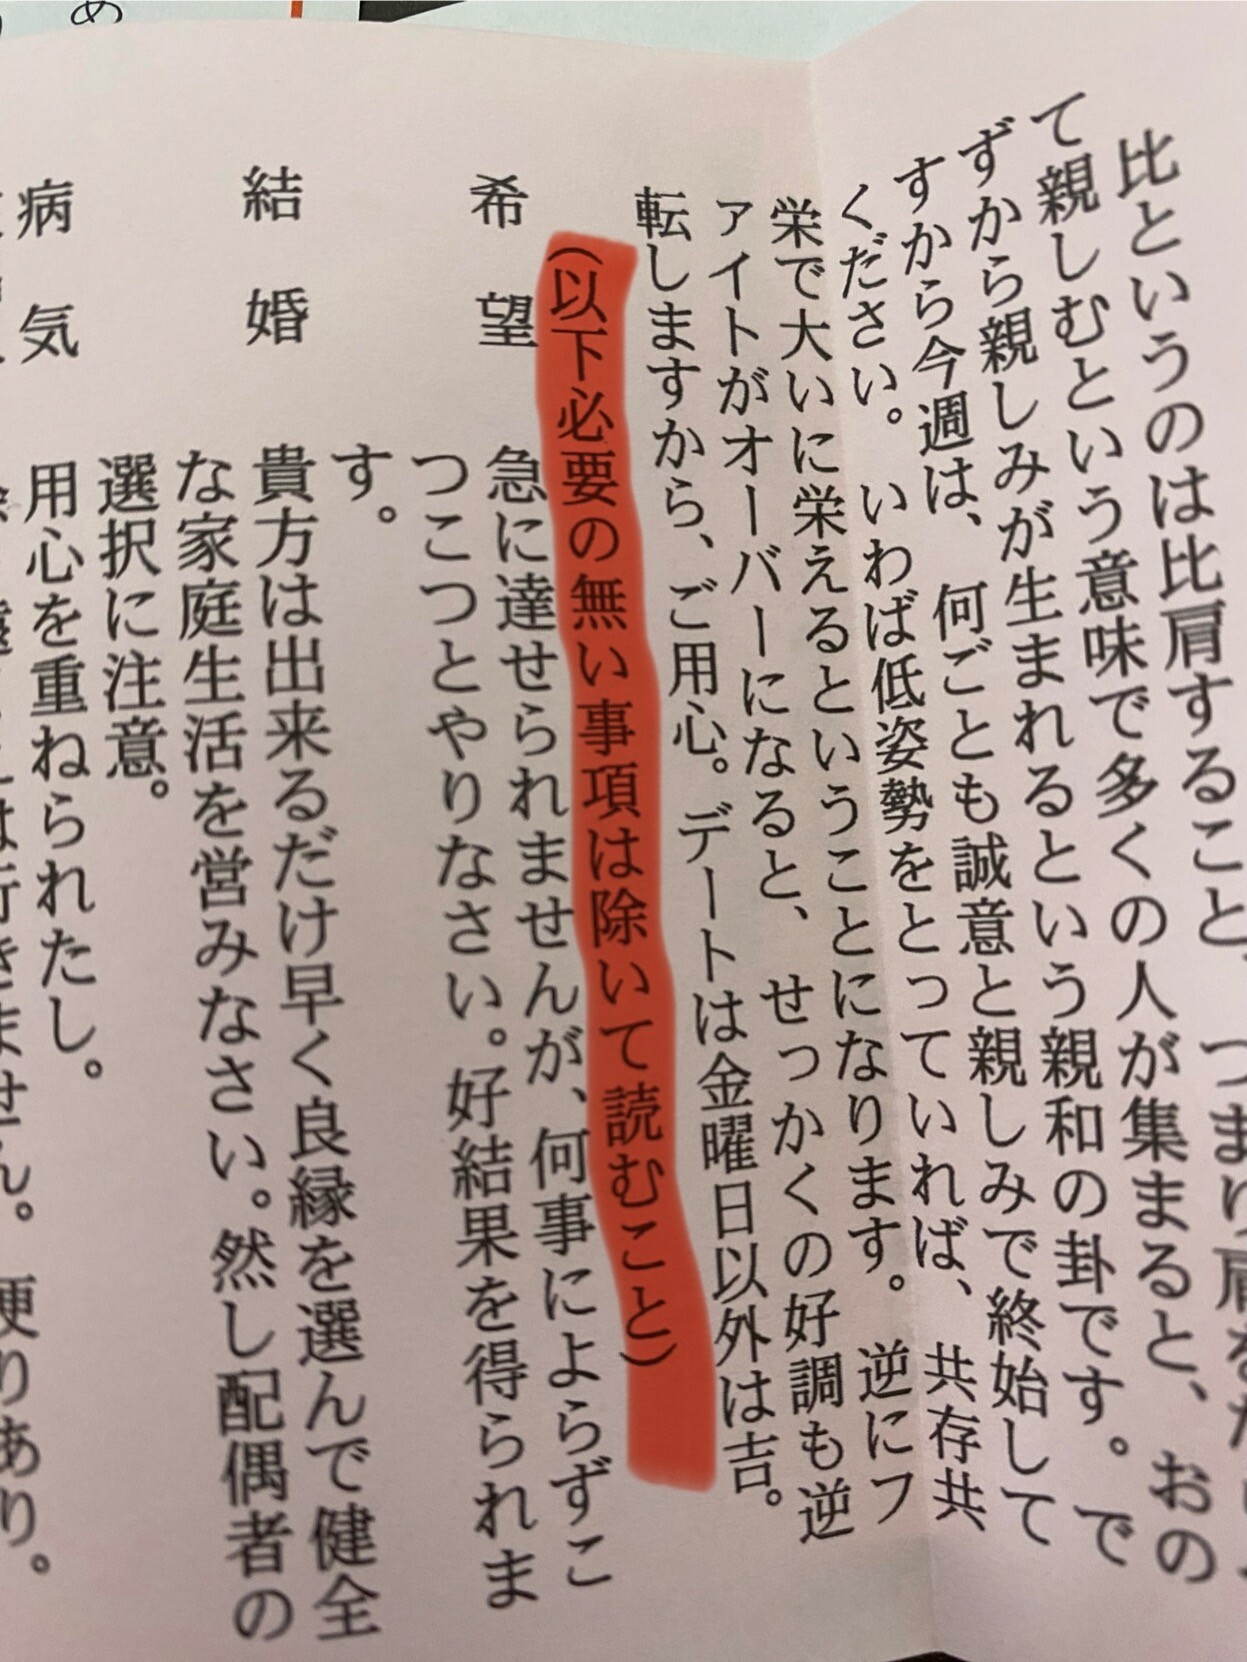 比というのは比肩すること、つまり肩をな
て親しむという意味で多くの人が集まると、おの
ずから親しみが生まれるという親和の卦です。で
すから今週は、何ごとも誠意と親しみで終始して
ください。いわば低姿勢をとっていれば、共存共
栄で大いに栄えるということになります。逆にフ
ァイトがオーバーになると、せっかくの好調も逆
転しますから、ご用心。デートは金曜日以外は吉。
(以下必要の無い事項は除いて読むこと)
希望 急に達せられませんが、何事によらずこ
つこつとやりなさい。好結果を得られま
す。
結婚 貴方は出来るだけ早く良縁を選んで健全
な家庭生活を営みなさい。然し配偶者の
選択に注意。
病気 用心を重ねられたし。
は行きません。便りあり。
め